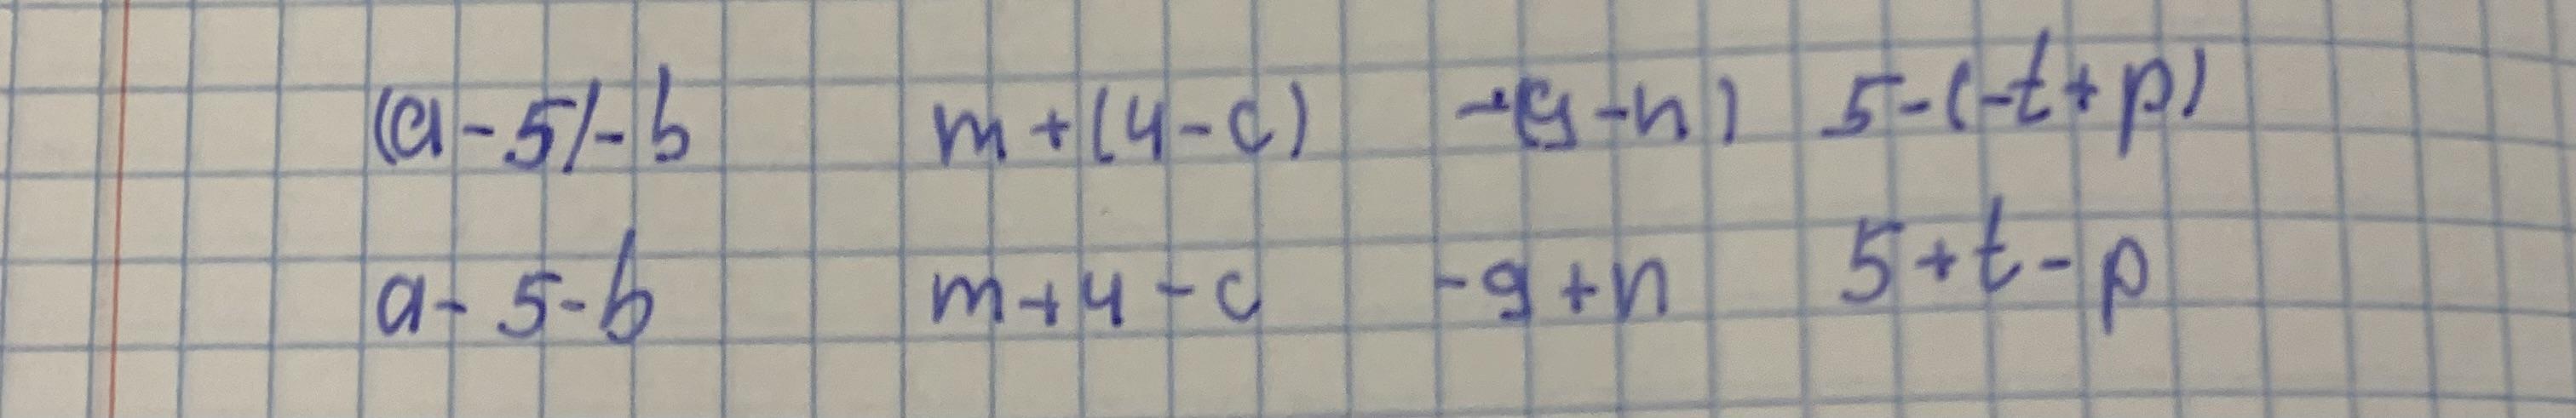 (a-5)-b m+(4-c) -(9-n) 5-(-t+p)
a-5-b m+4-c -9+n 5+t-p